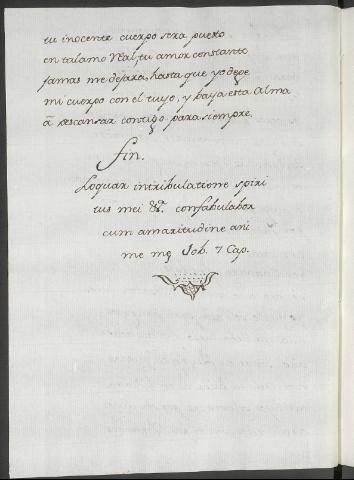 tu inocente cuerpo sera puesto
en talamo Real, tu amor constante
jamas me dejara, hasta que yo dege
mi cuerpo con el tuyo, y baya esta Alma
â descansar contigo para siempre.
Fin.
Loquar intribulatione spiri
tus mei &c. confabulabor
cum amaritudine ani
me meę Job. 7 Cap.